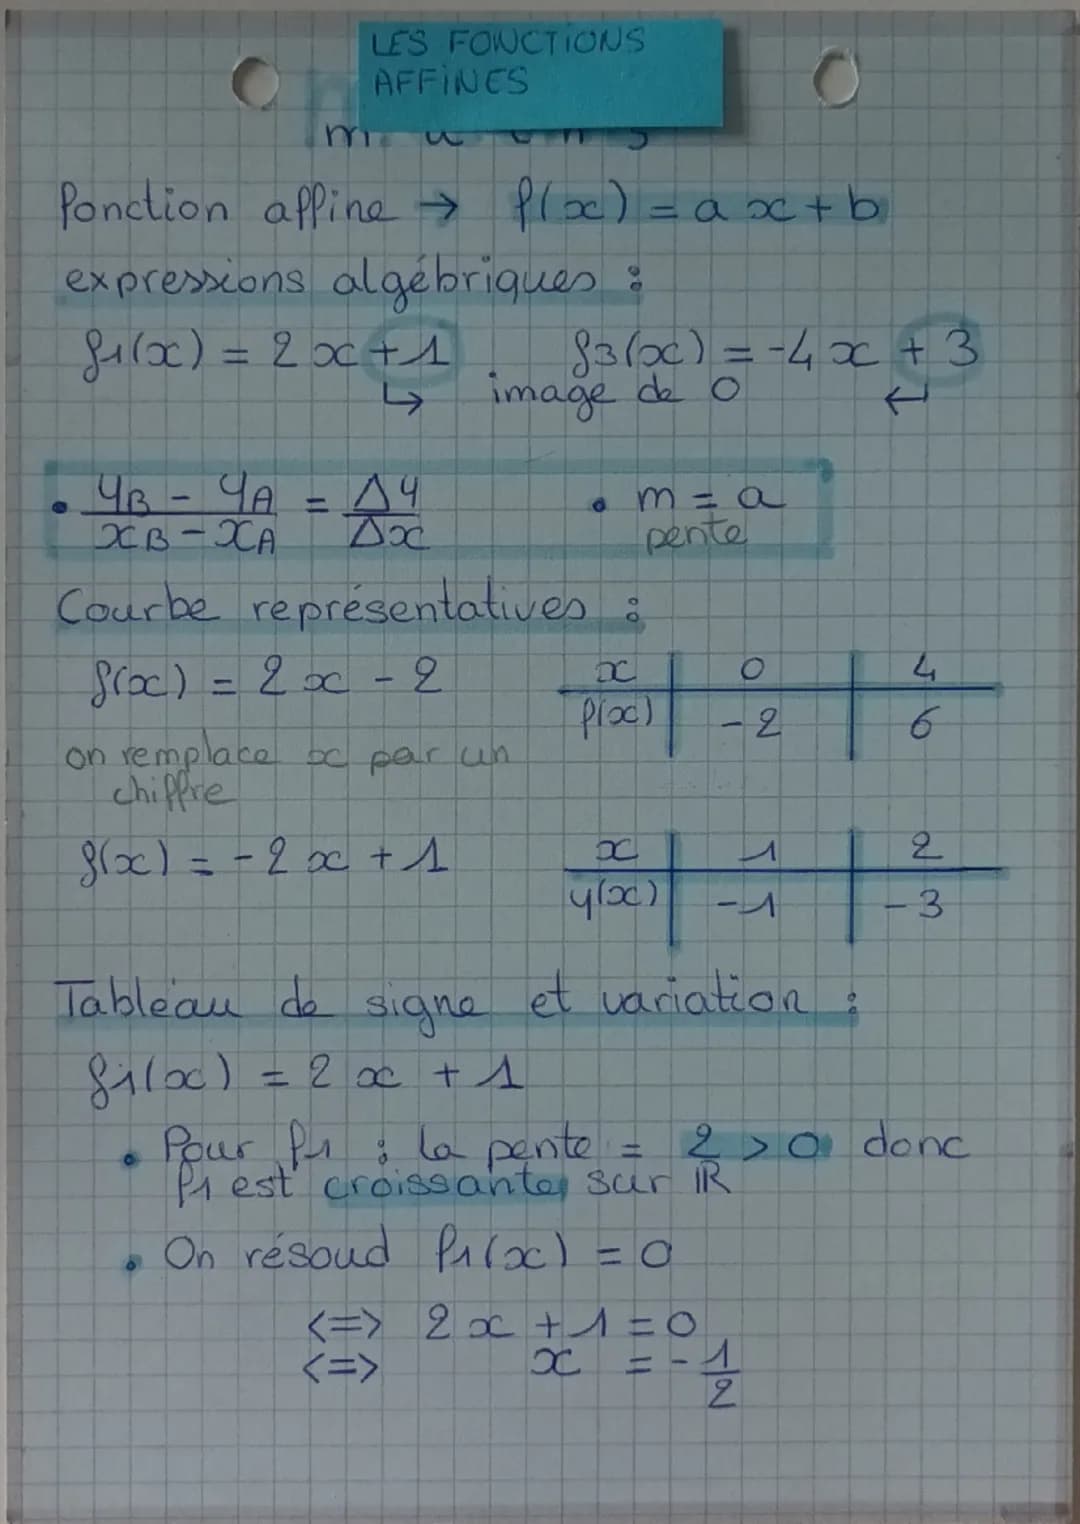 LES FONCTIONS
AFFINES
fonction affine → f(x) = ax+b
expressions algébriques :
f1(x) = 2x+1 f3(x) = -4x + 3
↳ image de 0 ↵
• yB - yA / xB - xA = Δy / Δx • m = a
pente
Courbe représentatives :
f(x) = 2x - 2
x | 0 | 4
f(x) | -2 | 6
on remplace x par un
chiffre
f(x) = -2x + 1
x | 1 | 2
y(x) | -1 | -3
Tableau de signe et variation :
f1(x) = 2x + 1
• Pour f1 : la pente = 2 > 0 donc
f1 est croissante sur ℝ
• On résoud f1(x) = 0
<=> 2x + 1 = 0
<=> x = -1/2